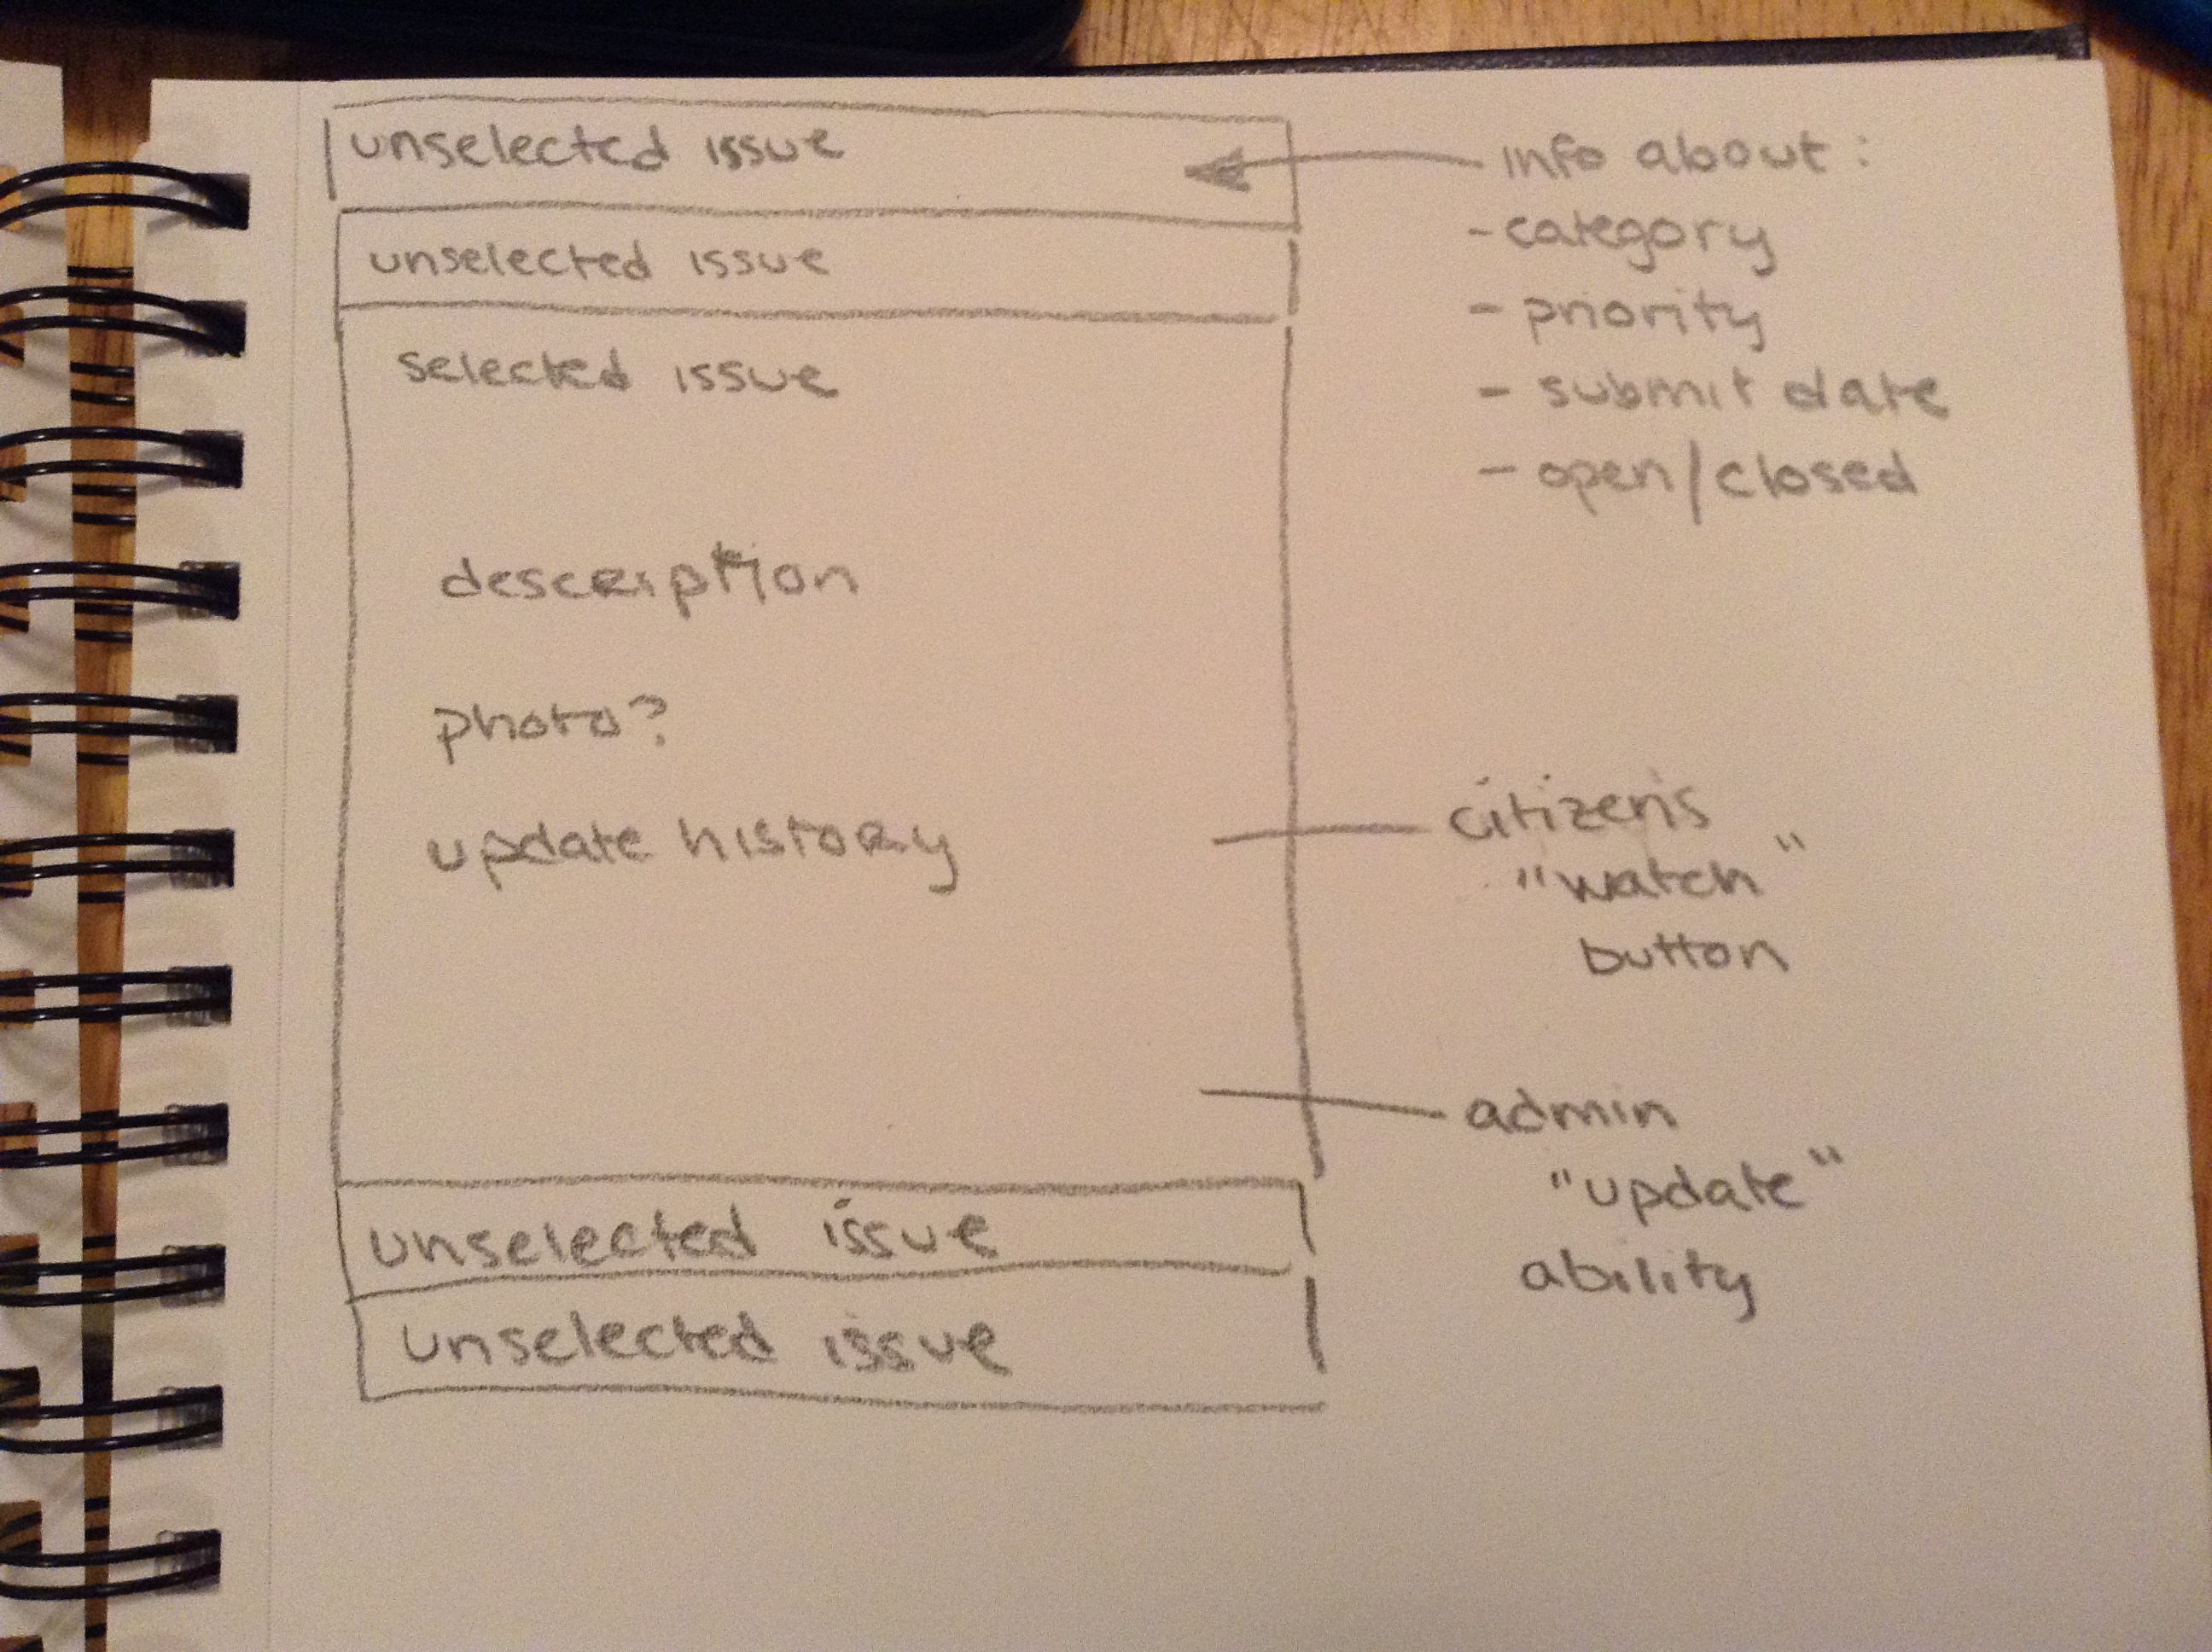 unselected issue
unselected issue
selected issue
description
photo?
update history
unselected issue
unselected issue
info about:
- category
- priority
- submit date
- open/closed
citizens
"watch"
button
admin
"update"
ability